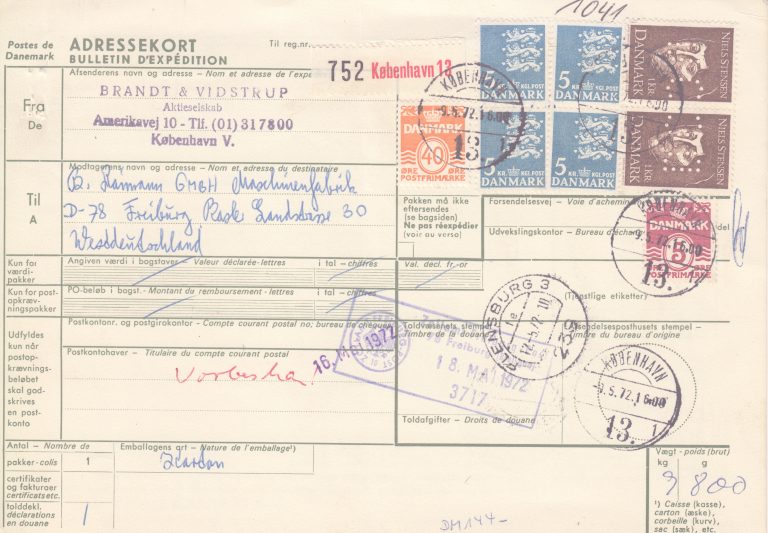 1041
Postes de Danemark
ADRESSEKORT
BULLETIN D'EXPÉDITION
Til reg.nr.
752 København 13
Afsenderens navn og adresse – Nom et adresse de l'expé
Fra
De
BRANDT & VIDSTRUP
Aktieselskab
Amerikavej 10 - Tlf. (01) 317800
København V.
DANMARK
40
ØRE ØRE
POSTFRIMÆRKE
5 KR. KGL.POST
DANMARK
5 KR. KGL.POST
DANMARK
5 KR. KGL.POST
DANMARK
5 KR. KGL.POST
DANMARK
DANMARK 1 KR NIELS STENSEN
DANMARK 1 KR NIELS STENSEN
DANMARK 1 KR NIELS STENSEN
DANMARK 1 KR NIELS STENSEN
KØBENHAVN
9.5.72.16.00
13. 17
Modtagerens navn og adresse – Nom et adresse du destinataire
Til
A
GmbH Maschinenfabrik
D-78 Freiburg Landstrasse 30
Westdeutschland
Pakken må ikke eftersendes (se bagsiden)
Ne pas réexpédier (voir au verso)
Forsendelsesvej – Voie d'achemin
Udvekslingskontor – Bureau d'échan
DANMARK
5
ØRE ØRE
POSTFRIMÆRKE
KØBENHAVN
9.5.72.16.00
13.
Kun for værdi-pakker
Angiven værdi i bogstaver – Valeur déclarée-lettres
i tal – chiffres
Val. décl. fr.-or
Kun for post-opkræv-ningspakker
PO-beløb i bogst. - Montant du remboursement - lettres
i tal – chiffres
(Tjenstlige etiketter)
Udfyldes kun når postop-krævnings-beløbet skal god-skrives en post-konto
Postkontonr. og postgirokontor – Compte courant postal no, bureau de chèques
Postkontohaver – Titulaire du compte courant postal
16. MAI 1972
Freiburg
18. MAI 1972
3717
Toldvæsenets stempel – Timbre de la douane
FLENSBURG 3
Afsendelsesposthusets stempel – Timbre du bureau d'origine
KØBENHAVN
9.5.72.16.00
13. 17
Toldafgifter – Droits de douane
Antal – Nombre de
Emballagens art – Nature de l'emballage¹)
pakker-colis
1
Karton
certifikater og fakturaer certificatsetc.
tolddekl. déclarations en douane
1
DM 144-
Vægt - poids (brut)
kg g
9 800
¹) Caisse (kasse), carton (æske), corbeille (kurv), sac (sæk), etc.